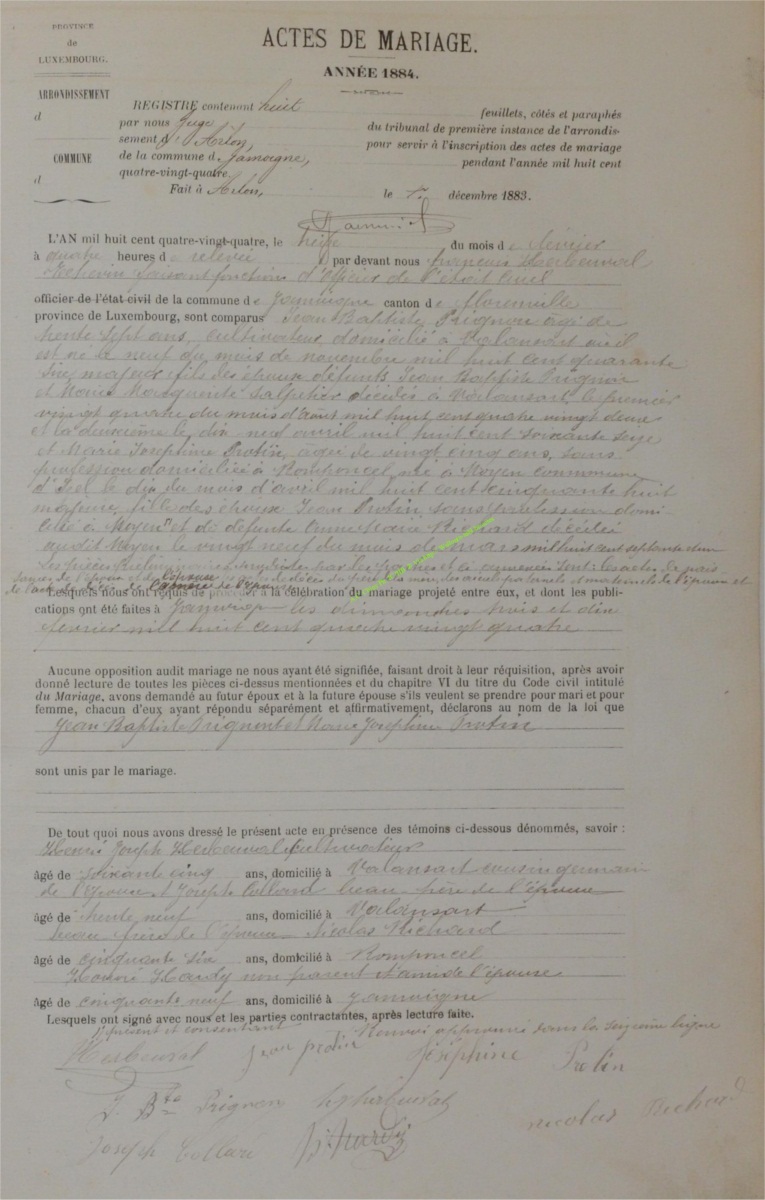 PROVINCE
de
LUXEMBOURG.
ARRONDISSEMENT
d
COMMUNE
d
ACTES DE MARIAGE.
ANNÉE 1884.
REGISTRE contenant huit feuillets, côtés et paraphés
par nous Juge du tribunal de première instance de l'arrondis-
sement d'Arlon, pour servir à l'inscription des actes de mariage
de la commune d Jamoigne, pendant l'année mil huit cent
quatre-vingt-quatre.
Fait à Arlon, le décembre 1883.
L'AN mil huit cent quatre-vingt-quatre, le treize du mois de février
à quatre heures de relevée par devant nous François Herbeuval
Echevin faisant fonctions d'Officier de l'état Civil
officier de l'état civil de la commune de Jamoigne canton de Florenville
province de Luxembourg, sont comparus Jean Baptiste Prignon âgé de
trente sept ans, cultivateur domicilié à Valansart où il
est né le neuf du mois de novembre mil huit cent quarante
six majeur fils des époux défunts Jean Baptiste Prignon
et Marie Marguerite décédés à Valansart le premier
vingt quatre du mois d'août mil huit cent quatre vingt deux
et la deuxième le dix neuf avril mil huit cent soixante seize
et Marie Joséphine Protin, âgée de vingt cinq ans, sans
profession domiciliée à Romponcel, née à Moyen commune
d'Izel le dix du mois d'avril mil huit cent cinquante huit
majeure, fille des époux Jean Protin sans profession domi-
cilié à Moyen et de défunte Anne Marie Richard décédée
audit Moyen le vingt neuf du mois de mars mil huit cent septante deux
Les pièces sont: les actes de nais-
sance de l'époux et de l'épouse de décès du père la mère, des aïeuls paternels et maternels de l'époux et
de l'épouse
Lesquels nous ont requis de procéder à la célébration du mariage projeté entre eux, et dont les publi-
cations ont été faites à Jamoigne les dimanches trois et dix
février mil huit cent quatre vingt quatre
Aucune opposition audit mariage ne nous ayant été signifiée, faisant droit à leur réquisition, après avoir
donné lecture de toutes les pièces ci-dessus mentionnées et du chapitre VI du titre du Code civil intitulé
du Mariage, avons demandé au futur époux et à la future épouse s'ils veulent se prendre pour mari et pour
femme, chacun d'eux ayant répondu séparément et affirmativement, déclarons au nom de la loi que
Jean Baptiste Prignon et Marie Joséphine Protin
sont unis par le mariage.
De tout quoi nous avons dressé le présent acte en présence des témoins ci-dessous dénommés, savoir :
Henri Joseph Herbeuval Cultivateur
âgé de soixante cinq ans, domicilié à Valansart cousin germain
de l'épouse, Joseph Collard beau frère de l'épouse
âgé de trente neuf ans, domicilié à Valansart
beau frère de l'époux Nicolas Richard
âgé de cinquante six ans, domicilié à Romponcel
Honoré Hardy non parent et ami de l'épouse
âgé de cinquante neuf ans, domicilié à Jamoigne
Lesquels ont signé avec nous et les parties contractantes, après lecture faite.
présent et consentant Renvoi approuvé dans la seizième ligne
Herbeuval Jean protin Joséphine Protin
J. Bte Prignon hj herbeuval nicolas Richard
Joseph Collard H. Hardy